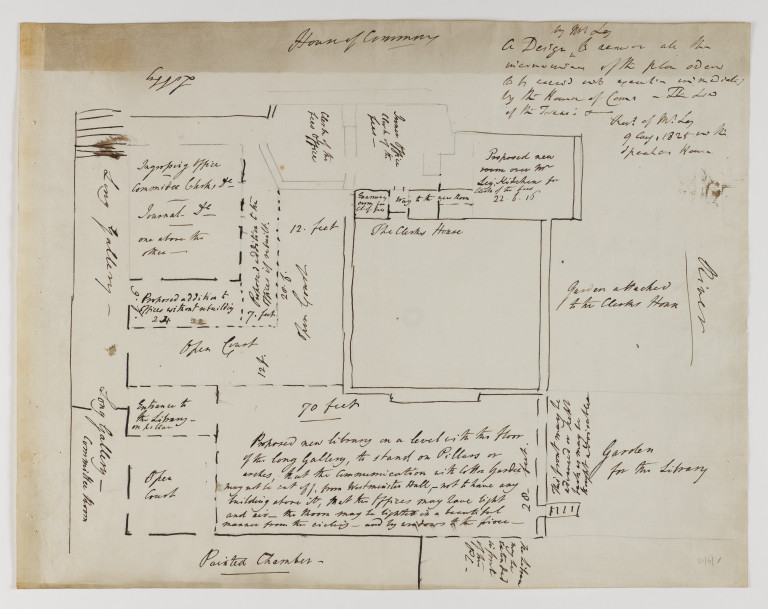 House of Commons
by Mr Ley
A Design to remove all the
inconveniences of the plan ordered
to be carried into execution immediately
by the House of Coms
of Mr Ley
1825 in the
Speakers House
Lobby
Ingrossing Office
Committee Clerks, &c
Journal &c
one above the
other
Long Gallery
Clerk of the
Fees Office
Inner Office
Clerk of the
Fees
Proposed new
room over Mr
Ley's Kitchen for
Clerk of the Fees
22 . 6 . 15
way to the new Room
12. feet
The Clerks House
Proposed addition to the
Offices if rebuilt.
20 f.
Open Court
River
Garden attached
to the Clerks House
Proposed addition to
Offices without rebuilding
7. feet
Open Court
12 f.
Long Gallery
Committee Room
Entrance to
the Library
70 feet
Open
Court
Proposed new Library on a level with the floor
of the Long Gallery, to stand on Pillars or
arches, that the Communication with the Garden
may not be cut off, from Westminster Hall, not to have any
building above it, that the Offices may have light
and air the Room may be lighted in a beautiful
manner from the cieling and by windows to the river
28 feet
This front may be
Garden
for the Library
Painted Chamber
The Library
may be
extended